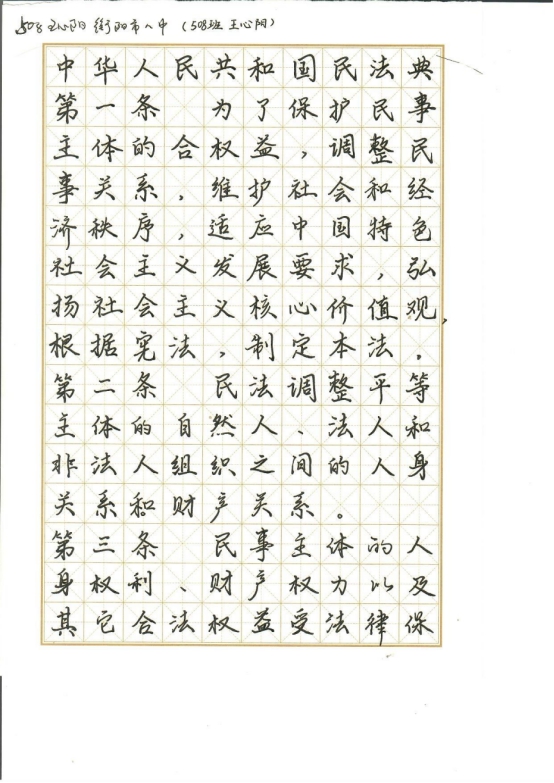 508 王心阳 衡阳市八中 (508班 王心阳)
中华人民共和国民法典
第一条 为了保护民事
主体的合法权益，调整民
事关系，维护社会和经
济秩序，适应中国特色
社会主义发展要求，弘
扬社会主义核心价值观，
根据宪法，制定本法。
第二条 民法调整平等
主体的自然人、法人和
非法人组织之间的人身
关系和财产关系。
第三条 民事主体的人
身权利、财产权力以及
其它合法权益受法律保